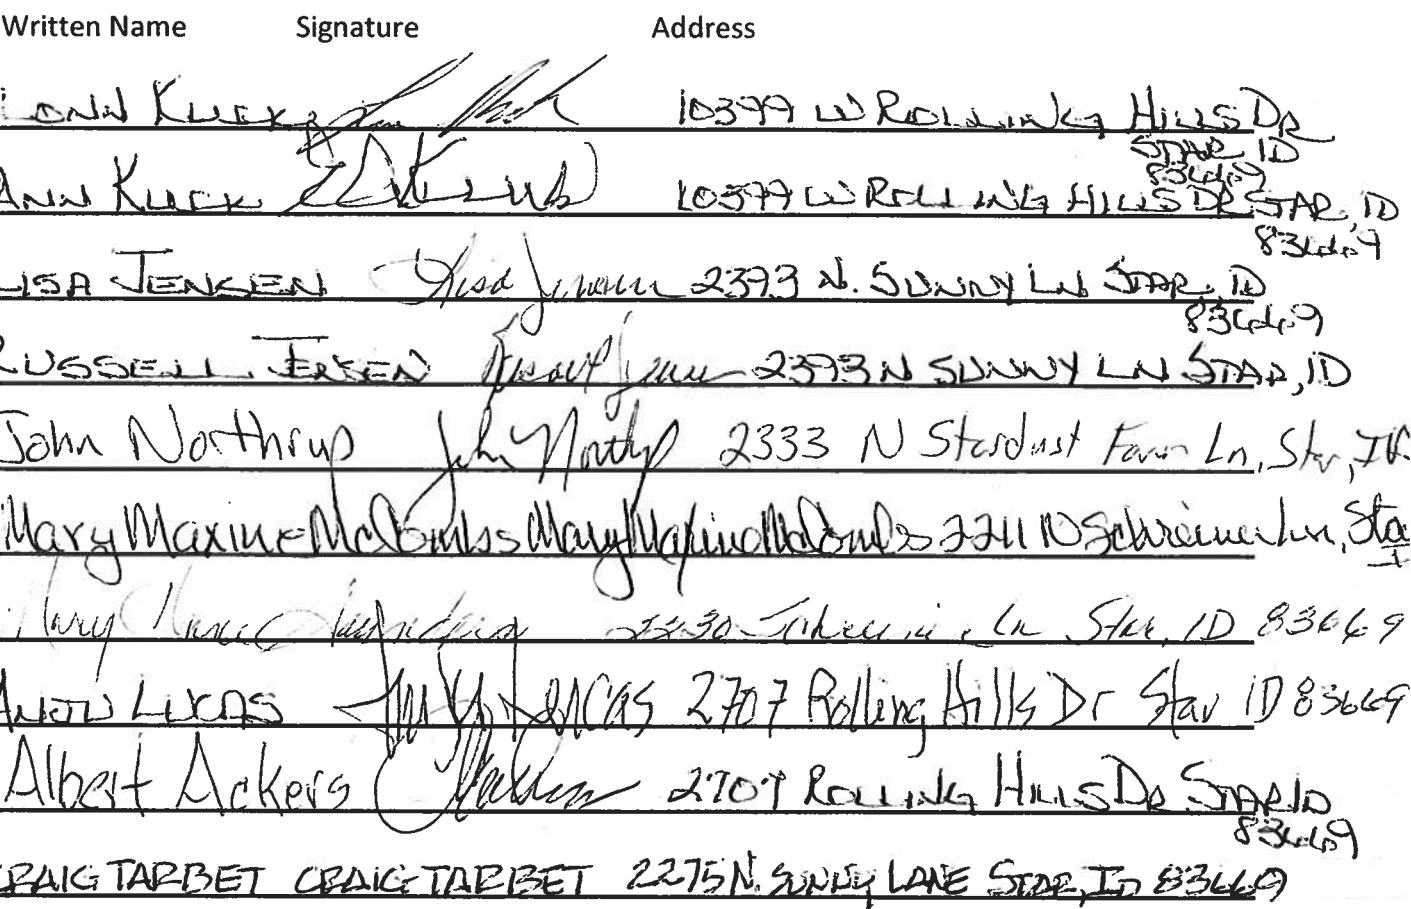 Written Name Signature Address
LONN KUCK 10399 W ROLLING HILLS DR
STAR ID
83669
ANN KUCK 10399 W ROLLING HILLS DR STAR, ID
83669
LISA JENSEN Lisa Jensen 2393 N. SUNNY LN STAR, ID
83669
RUSSELL JENSEN Russell Jensen 2393 N SUNNY LN STAR, ID
John Northrup John Northrup 2333 N Stardust Farm Ln, Star, ID
Mary Maxine McCombs Mary Maxine McCombs 2211 N Schreiner Ln, Sta
I
Mary Ln Star, ID 83669
LUKAS 2707 Rolling Hills Dr Star ID 83669
Albert Ackers 2707 ROLLING HILLS DR STAR ID
83669
CRAIG TARBET CRAIG TARBET 2275 N. SUNNY LANE STAR, ID 83669